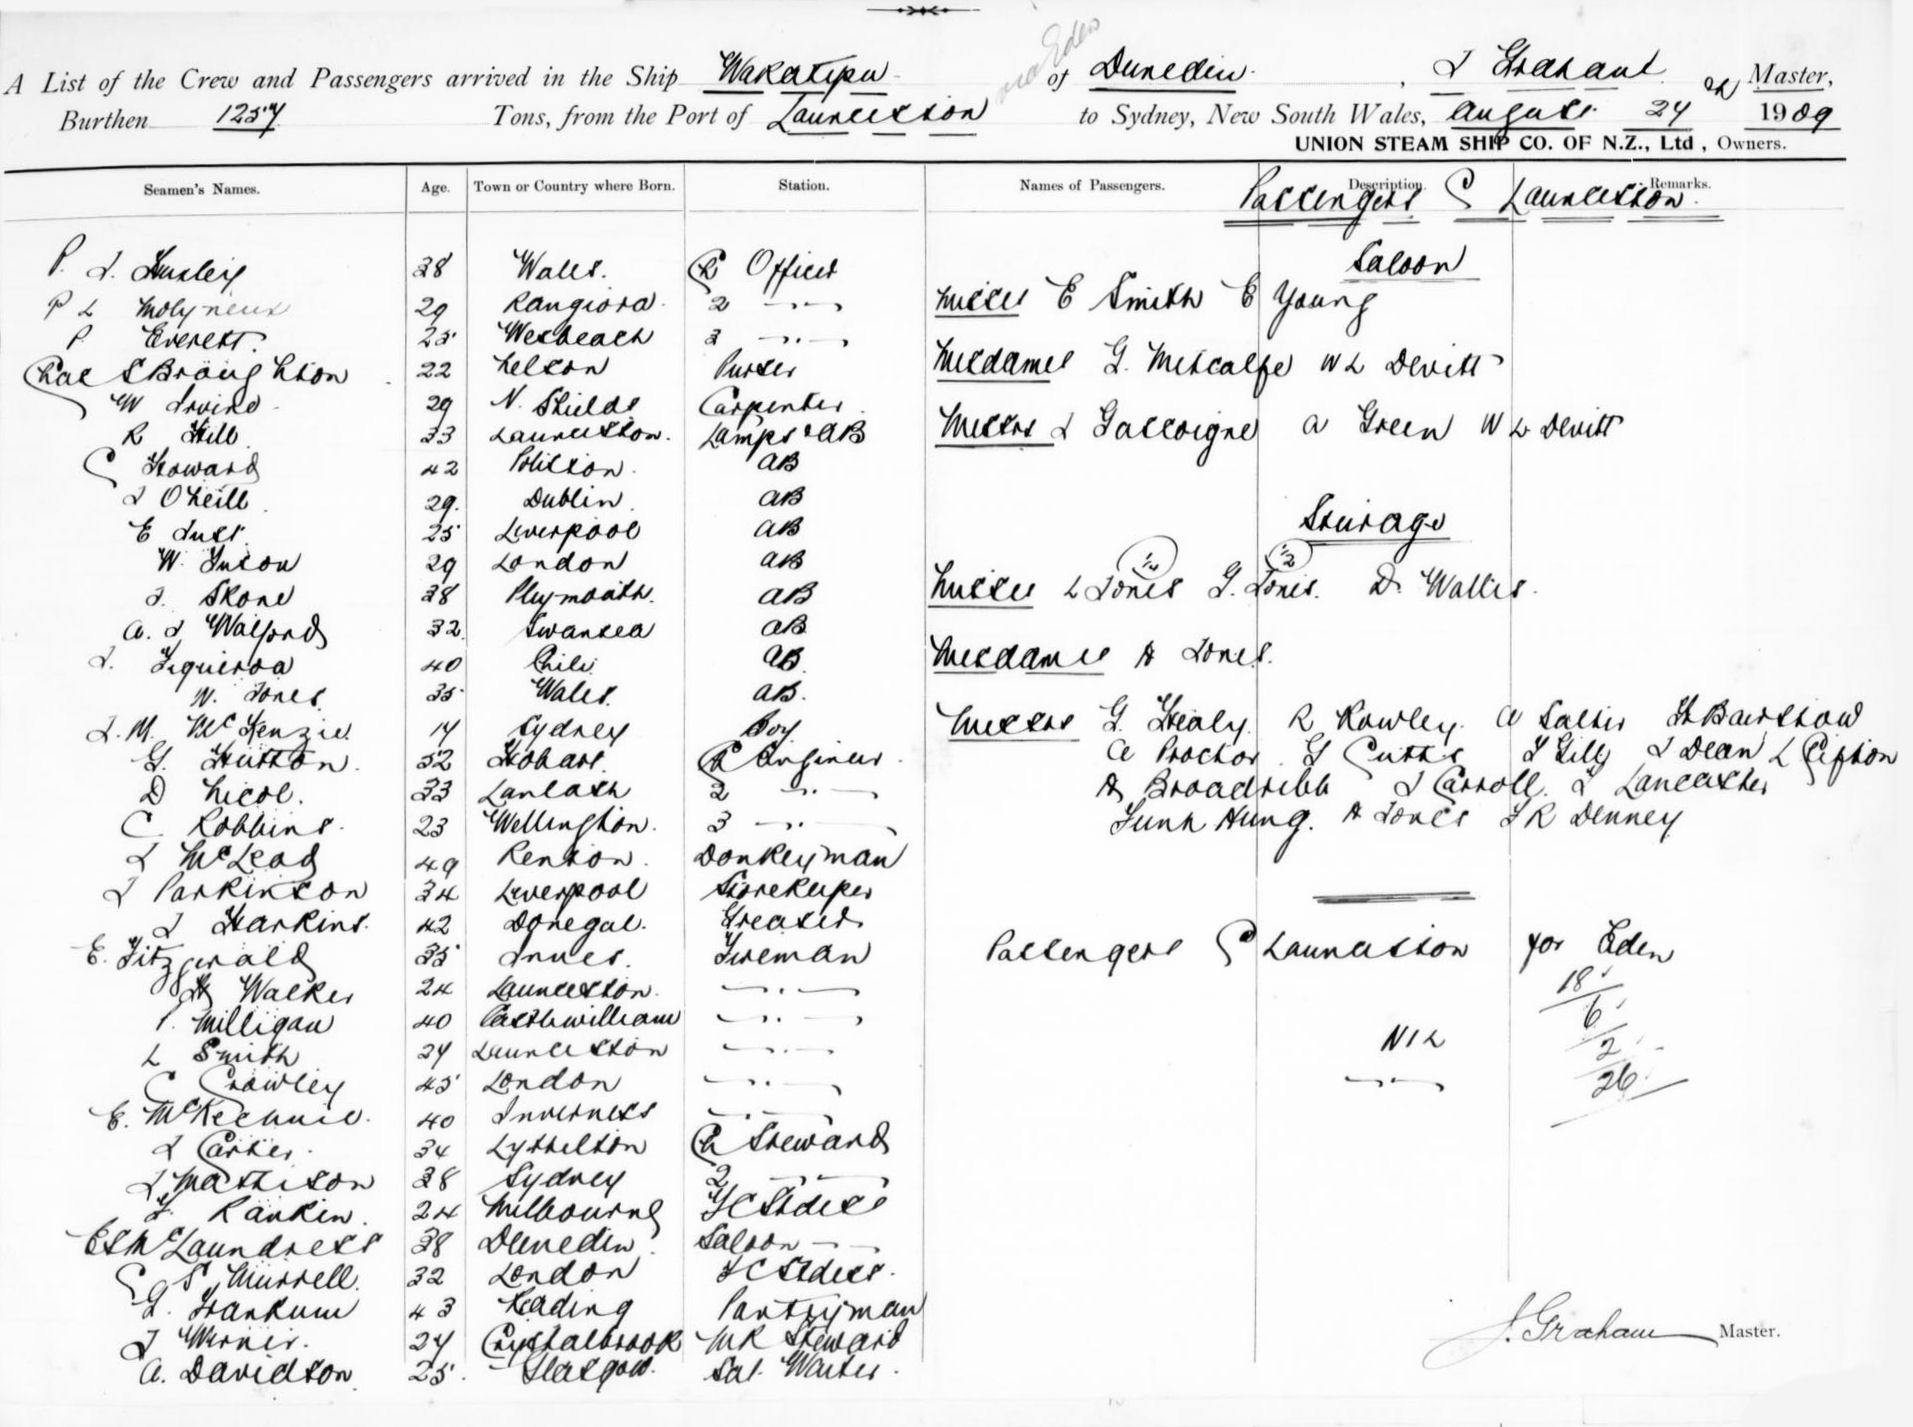 via Eden
A List of the Crew and Passengers arrived in the Ship Wakatipu of Dunedin, J Graham Master,
Burthen 1257 Tons, from the Port of Launceston to Sydney, New South Wales, August 24 1909
UNION STEAM SHIP CO. OF N.Z., Ltd, Owners.
Seamen's Names. Age. Town or Country where Born. Station. Names of Passengers. Description. Remarks.
Passengers Launceston.
P. J. 38 Wales. Ch Officer
P L Molyneux 29 Rangiora 2 -----
P Everett. 25 Wesbeach 3 -----
Chas S Broughton 22 Nelson Purser
W Irvine 29 N. Shields Carpenter
R Hill 33 Launceston. Lamps & AB
C Howard 42 AB
J O'Neill 29. Dublin AB
E Just 25 Liverpool AB
W. 29 London AB
J. Skone 38 Plymouth. AB
A. J Walford 32 Swansea AB
J. Figueroa 40 Chili AB
W. Jones 35 Wales AB.
J. M. McKenzie 17 Sydney Boy
G. Hutton. 52 Hobart Ch Engineer
D Nicol. 33 Lanlash 2 -----
C Robbins. 23 Wellington. 3 -----
J McLeod 49 Renton. Donkeyman
J Parkinson 34 Liverpool Storekeeper
J Harkins. 42 Donegal. Greaser
E. Fitzgerald 35 Fireman
H Walker 24 Launceston. -----
P. Milligan 40 Castlewilliam -----
L Smith 24 Launceston -----
C Crowley 45 London -----
E. McKechnie. 40 Inverness -----
J Carter. 34 Lyttelton Ch Steward
J Mathison 38 Sydney 2 -----
F Rankin. 24 Melbourne FC Stdess
E S McLaundress 38 Dunedin Saloon -----
S Murrell. 32 London SC Stdess.
G. Frankum 43 Reading Pantryman
J Werner. 24 Crystalbrook MR Steward
A. Davidson 25. Glasgow. Sal. Waiter.
Saloon
Misses E Smith E Young
Mesdames G. Metcalfe W L Devitt
Messrs J Gascoigne A Green W L Devitt
Steerage
1/2 1/2
Misses L Jones G. Jones. D. Wallis.
Mesdames A Jones.
Messrs G. Healy. R Rowley. A Salter H Bairstow
A Proctor G Cutts F Gill J Dean L Clifton
A Broadribb J Carroll. J Lancaster
Hung. A Jones F R Denney
Passengers Launceston for Eden
18
6
NIL 2
----- 26
J. Graham Master.